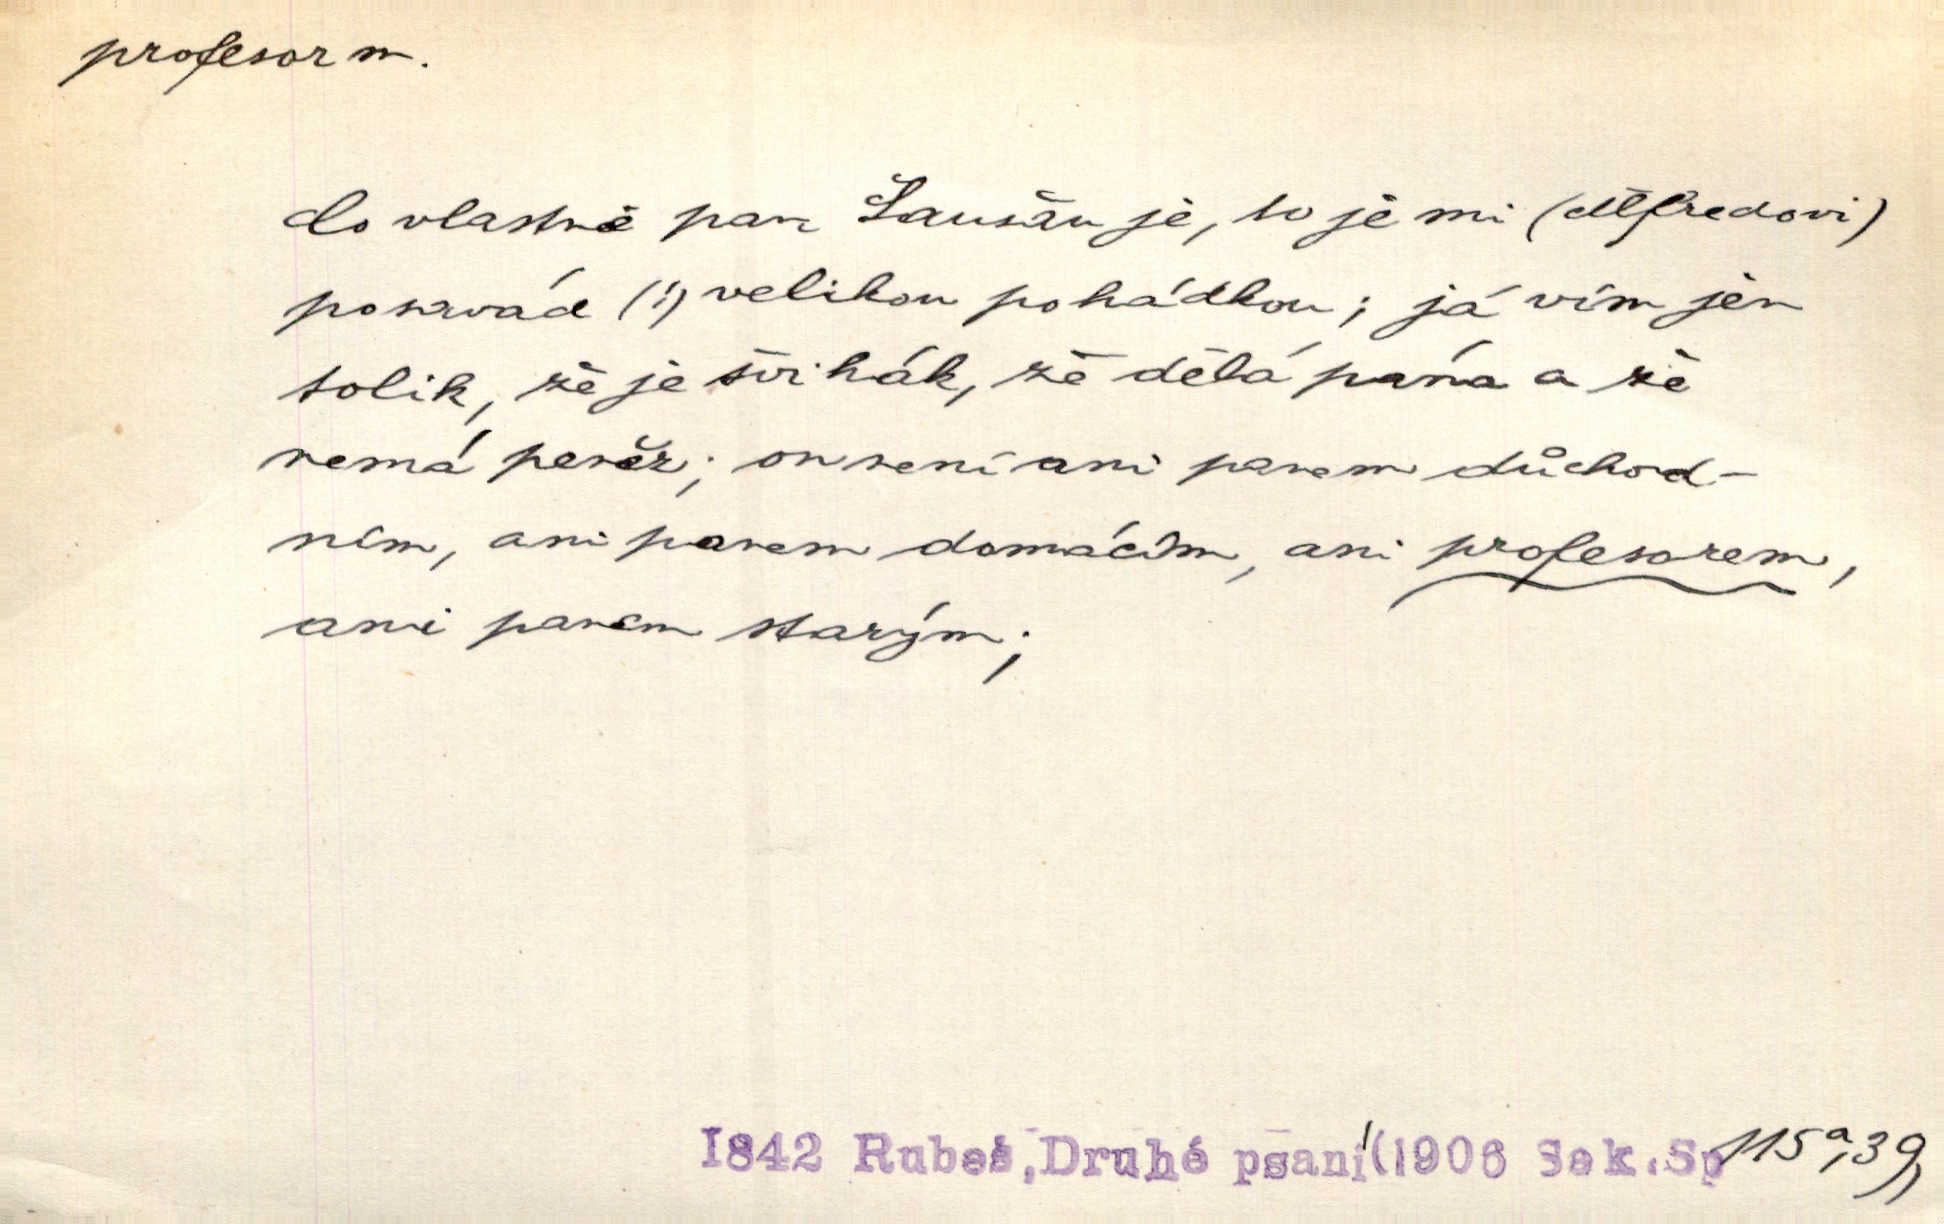 profesor m.
Co vlastně pan Šausán je, to je mi (Alfredovi)
posavád (!) velikou pohádkou; já vím jen
tolik, že je švihák, že dělá pána a že
nemá peněz; on není ani panem důchod-
ním, ani panem domácím, ani profesorem,
ani panem starým;
1842 Rubeš, Druhé psaní (1906 Seb. Sp 115a,39)